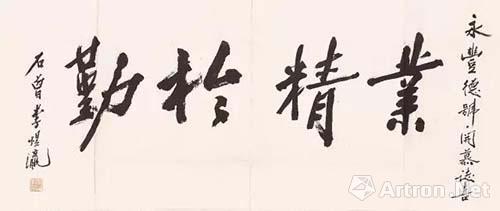 永豐德號開幕誌喜
業精於勤
石曾李煜瀛
Artron.Net